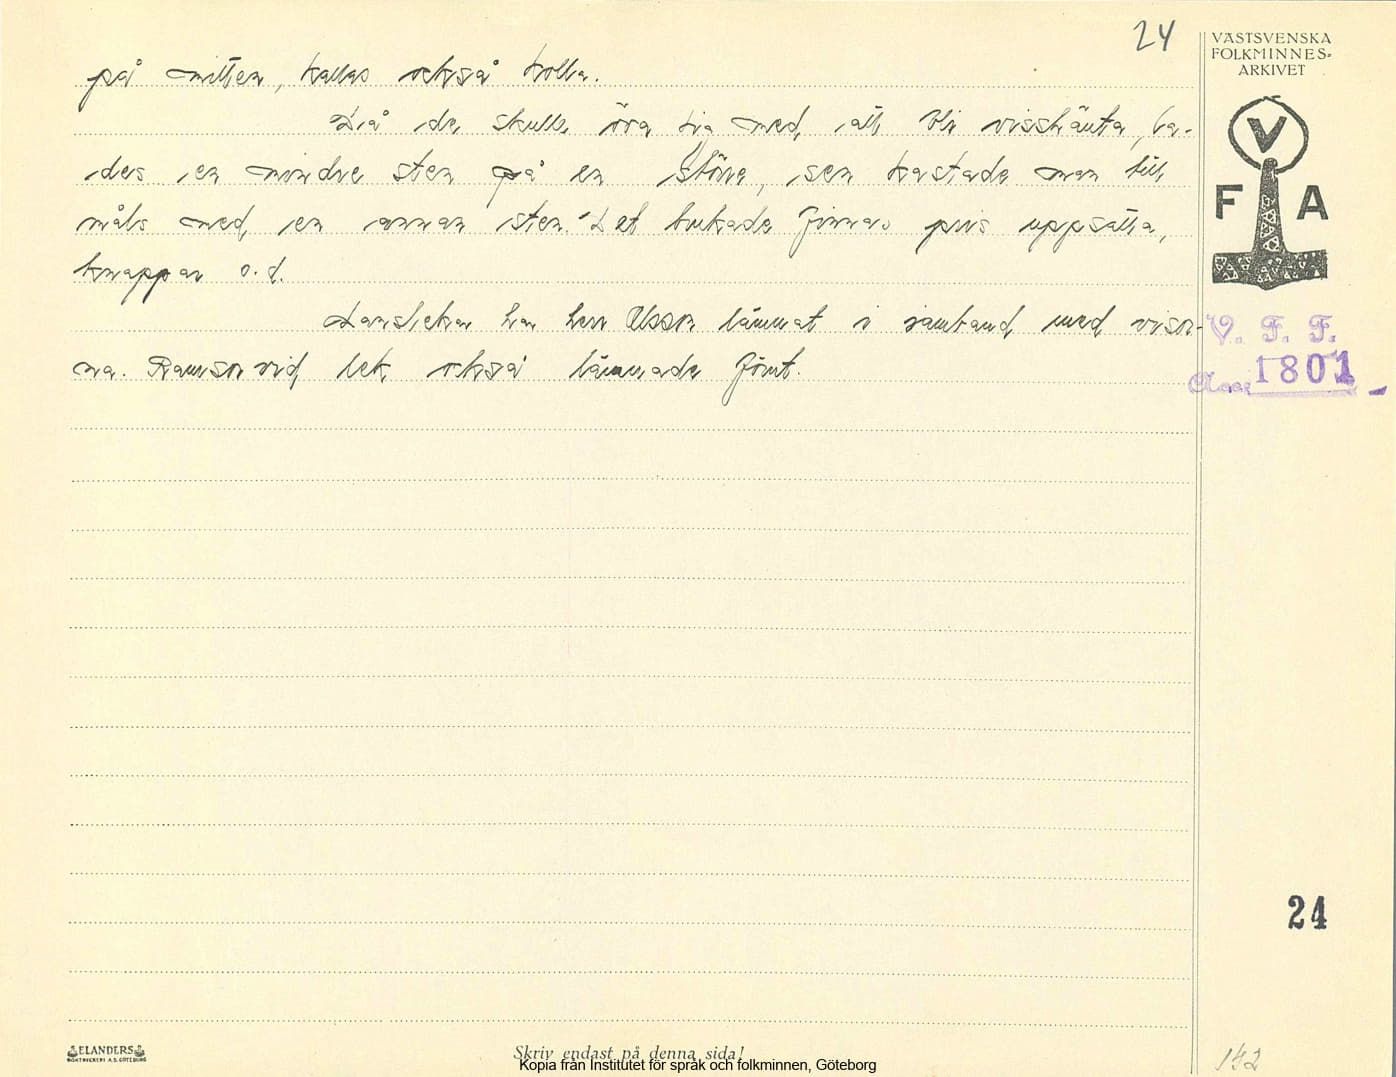 24
VÄSTSVENSKA
FOLKMINNES-
ARKIVET
V
F A
på mitten, kallas också kolla.
Då de skulle öva sig med att bli visshänta, la-
des en mindre sten på en större, sen kastade man till
måls med en annan sten. Det brukade finnas pris uppsatta,
knappar o.d.
Danslekar har herr Olsson lämnat i samband med visor-
na. Ramsor vid lek också lämnade förut.
V. F. F.
Acc. 1801
24
ELANDERS
BOKTRYCKERI A.B. GÖTEBORG
Skriv endast på denna sida!
Kopia från Institutet för språk och folkminnen, Göteborg